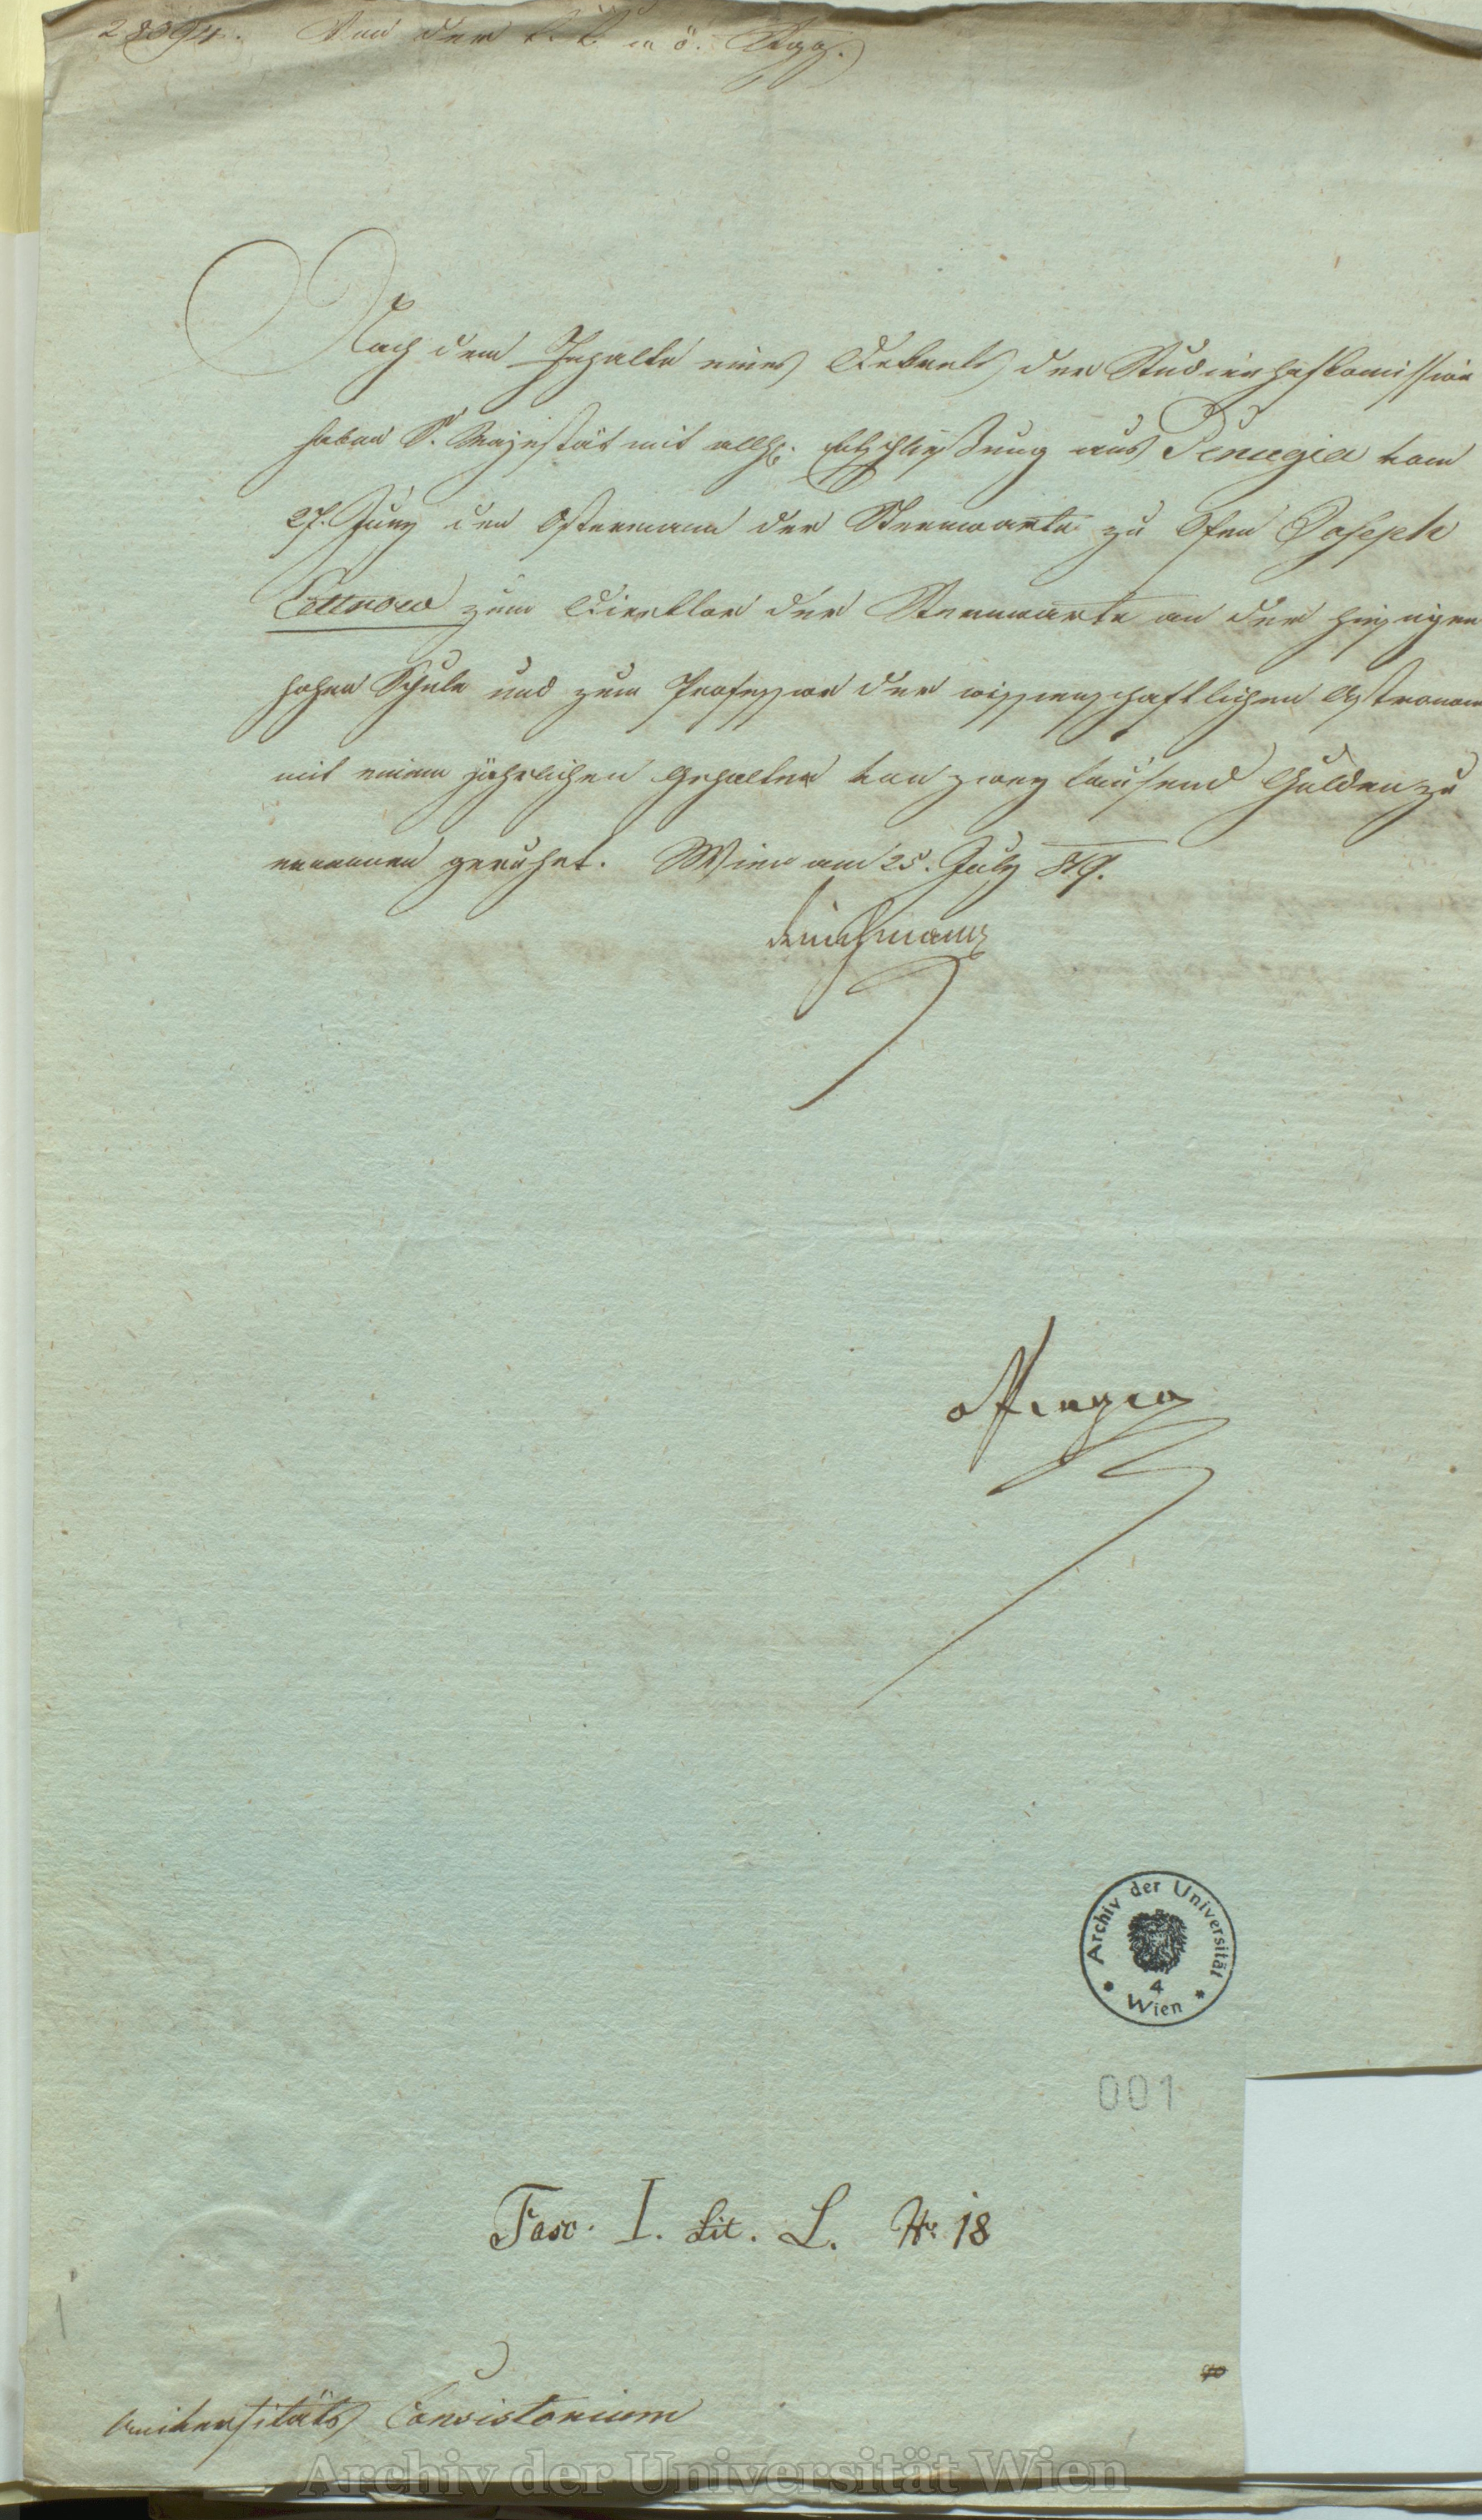 28394. Von der k. k. n. ö. Regg.
Nach dem Inhalte eines Dekrets der Studienhofkomission
haben S. Majestät mit allh. Entschließung aus Perugia vom
27. Juny den Astronom der Sternwarte zu Ofen Joseph
Littrow zum Direktor der Sternwarte an der hiesigen
hohen Schule und zum Professor der wissenschaftlichen Astronom
mit einem jährlichen Gehalte von zwey tausend Gulden zu
ernennen geruhet. Wien am 25. July 819.
Archiv der Universität
4
Wien
001
Fasc. I. Lit. L. Nr. 18
1
Universitäts Consistorium
Archiv der Universität Wien